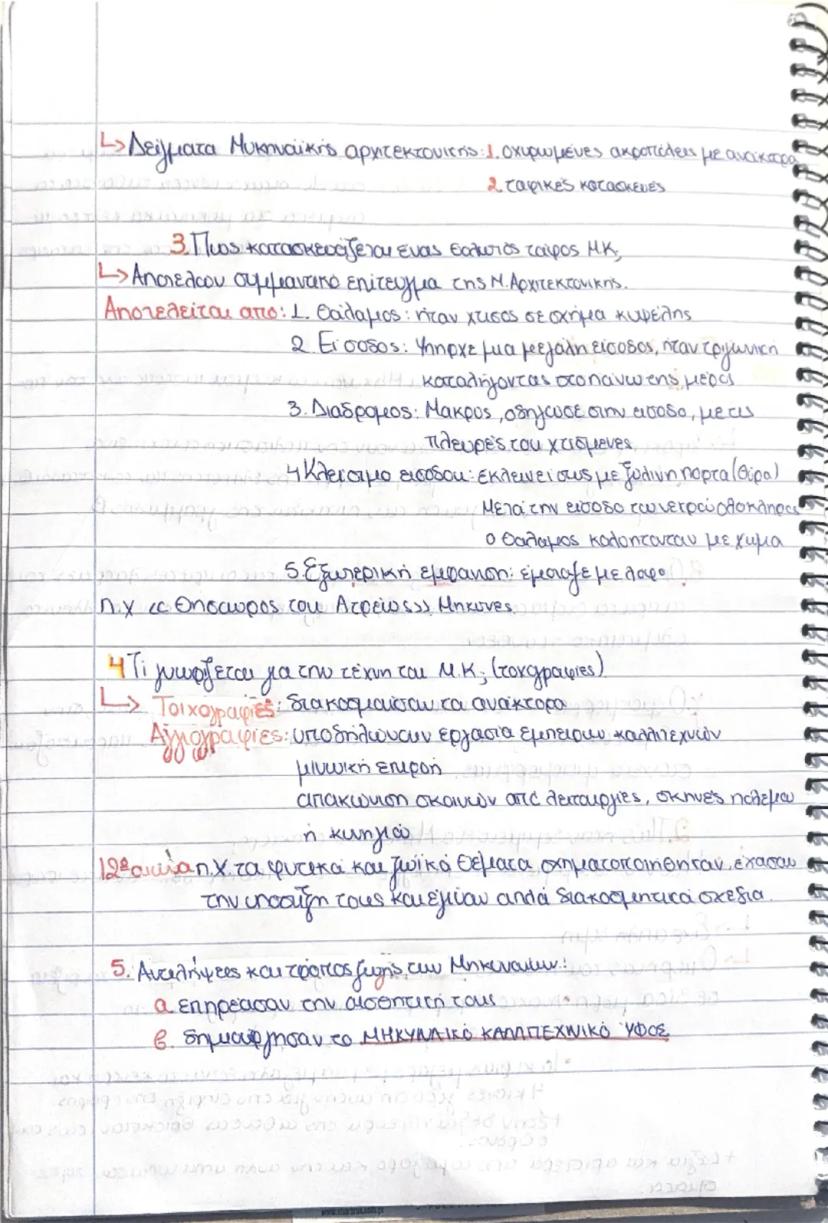 ↳ Δείγματα Μυκηναϊκής αρχιτεκτονικής: 1. οχυρωμένες ακροπόλεις με ανάκτορα
2. ταφικές κατασκευές
3. Πως κατασκευάζεται ένας θολωτός τάφος Μ.Κ;
↳ Αποτελούν σημμαντικό επίτευγμα της Μ. Αρχιτεκτονικής.
Αποτελείται από: 1. Θάλαμος: ήταν χτισος σε σχήμα κυψέλης
2. Είσοδος: Υπήρχε μια μεγάλη είσοδος, ήταν τριγωνική
καταλήγοντας στο πάνω της μέρος
3. Διάδρομος: Μακρος, οδηγούσε στην είσοδο, με τις
πλευρές του χτισμένες
4 Κλείσιμο εισόδου: με ξύλινη πόρτα (θύρα)
Μετά την είσοδο των νεκρού ολόκληρος
ο θάλαμος με χώμα
5. Εξωτερική εμφάνιση: έμοιαζε με λόφο.
π.χ << Θησαυρος του Ατρέως>> Μηκύνες
4 Τί γνωρίζεται για την τέχνη του Μ.Κ; (τοιχογραφίες)
↳ Τοιχογραφίες: διακοσμούσαν τα ανάκτορα
Αγγιογραφίες: υποδηλώνουν εργασία έμπειρων καλλιτεχνών
μινωική επιρροή
απεικόνιση σκηνών από λειτουργίες, σκηνές πολέμου
ή κυνηγιού
12ο αιώνα π.Χ. τα φυτικά και ζωϊκά θέματα σχηματοποιήθηκαν, έχασαν
την υπόσταση τους και έγιναν απλά διακοσμητικά σχέδια.
5. Αντιλήψεις και τρόπος ζωής των Μηκυναίων:
α. επηρέασαν την αισθητική τους
β. δημιούργησαν το ΜΗΚΥΝΑΙΚΟ ΚΑΛΛΙΤΕΧΝΙΚΟ ΥΦΟΣ